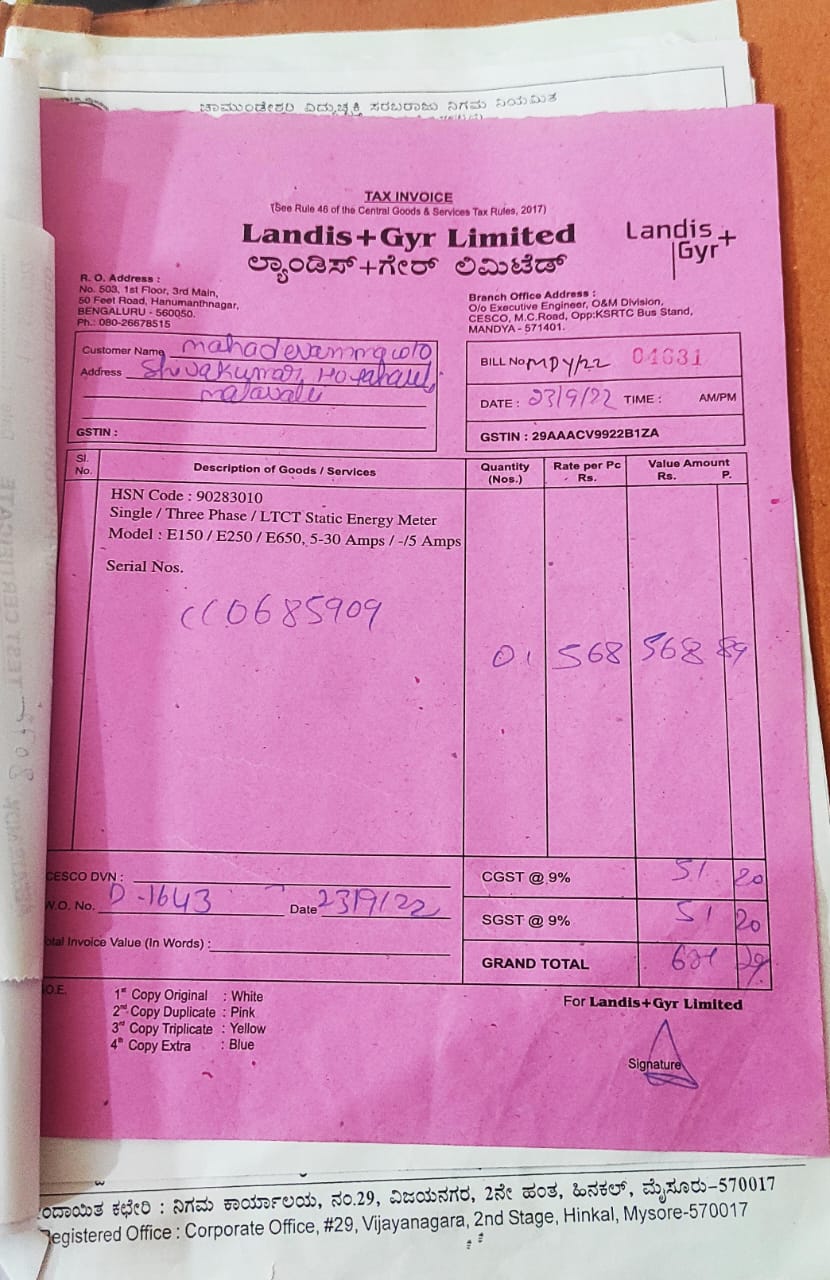 ಚಾಮುಂಡೇಶ್ವರಿ ವಿದ್ಯುಚ್ಛಕ್ತಿ ಸರಬರಾಜು ನಿಗಮ ನಿಯಮಿತ
TAX INVOICE
(See Rule 46 of the Central Goods & Services Tax Rules, 2017)
Landis+Gyr Limited
ಲ್ಯಾಂಡಿಸ್+ಗೇರ್ ಲಿಮಿಟೆಡ್
Landis
Gyr+
R. O. Address :
No. 503, 1st Floor, 3rd Main,
50 Feet Road, Hanumanthnagar,
BENGALURU - 560050.
Ph.: 080-26678515
Branch Office Address :
O/o Executive Engineer, O&M Division,
CESCO, M.C.Road, Opp:KSRTC Bus Stand,
MANDYA - 571401.
Customer Name mahadevamma w/o
Address Shivakumar,
malavalli
GSTIN :
BILL No MDY/22 04631
DATE : 23/9/22 TIME : AM/PM
GSTIN : 29AAACV9922B1ZA
Sl. No. Description of Goods / Services Quantity (Nos.) Rate per Pc Rs. Value Amount Rs. P.
HSN Code : 90283010
Single / Three Phase / LTCT Static Energy Meter
Model : E150 / E250 / E650, 5-30 Amps / -/5 Amps
Serial Nos.
CC0685909
01 568 568 89
CESCO DVN :
W.O. No. D-1643 Date 23/9/22
Total Invoice Value (In Words) :
CGST @ 9% 51 20
SGST @ 9% 51 20
GRAND TOTAL 29
O.E.
1st Copy Original : White
2nd Copy Duplicate : Pink
3rd Copy Triplicate : Yellow
4th Copy Extra : Blue
For Landis+Gyr Limited
Signature
ಕಛೇರಿ : ನಿಗಮ ಕಾರ್ಯಾಲಯ, ನಂ.29, ವಿಜಯನಗರ, 2ನೇ ಹಂತ, ಹಿನಕಲ್, ಮೈಸೂರು-570017
Registered Office : Corporate Office, #29, Vijayanagara, 2nd Stage, Hinkal, Mysore-570017